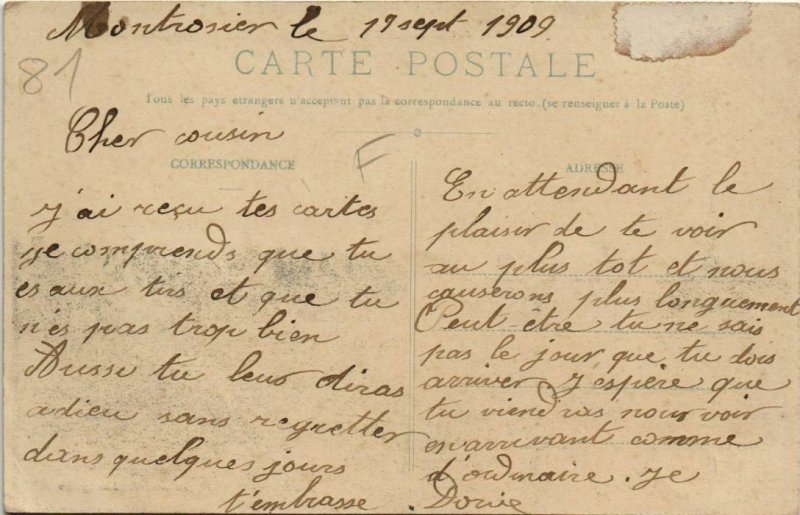 Montrosier le 17 sept 1909
81
CARTE POSTALE
Tous les pays étrangers n'acceptent pas la correspondance au recto (se renseigner à la Poste)
Cher cousin
F
CORRESPONDANCE
j'ai reçu tes cartes
je comprends que tu
es aux tirs et que tu
n'es pas trop bien
Aussi tu leur diras
adieu sans regretter
dans quelques jours
ADRESSE
En attendant le
plaisir de te voir
au plus tot et nous
causerons plus longuement
Peut être tu ne sais
pas le jour que tu dois
arriver j'espère que
tu viendras nous voir
en arrivant comme
d'ordinaire. je
t'embrasse.